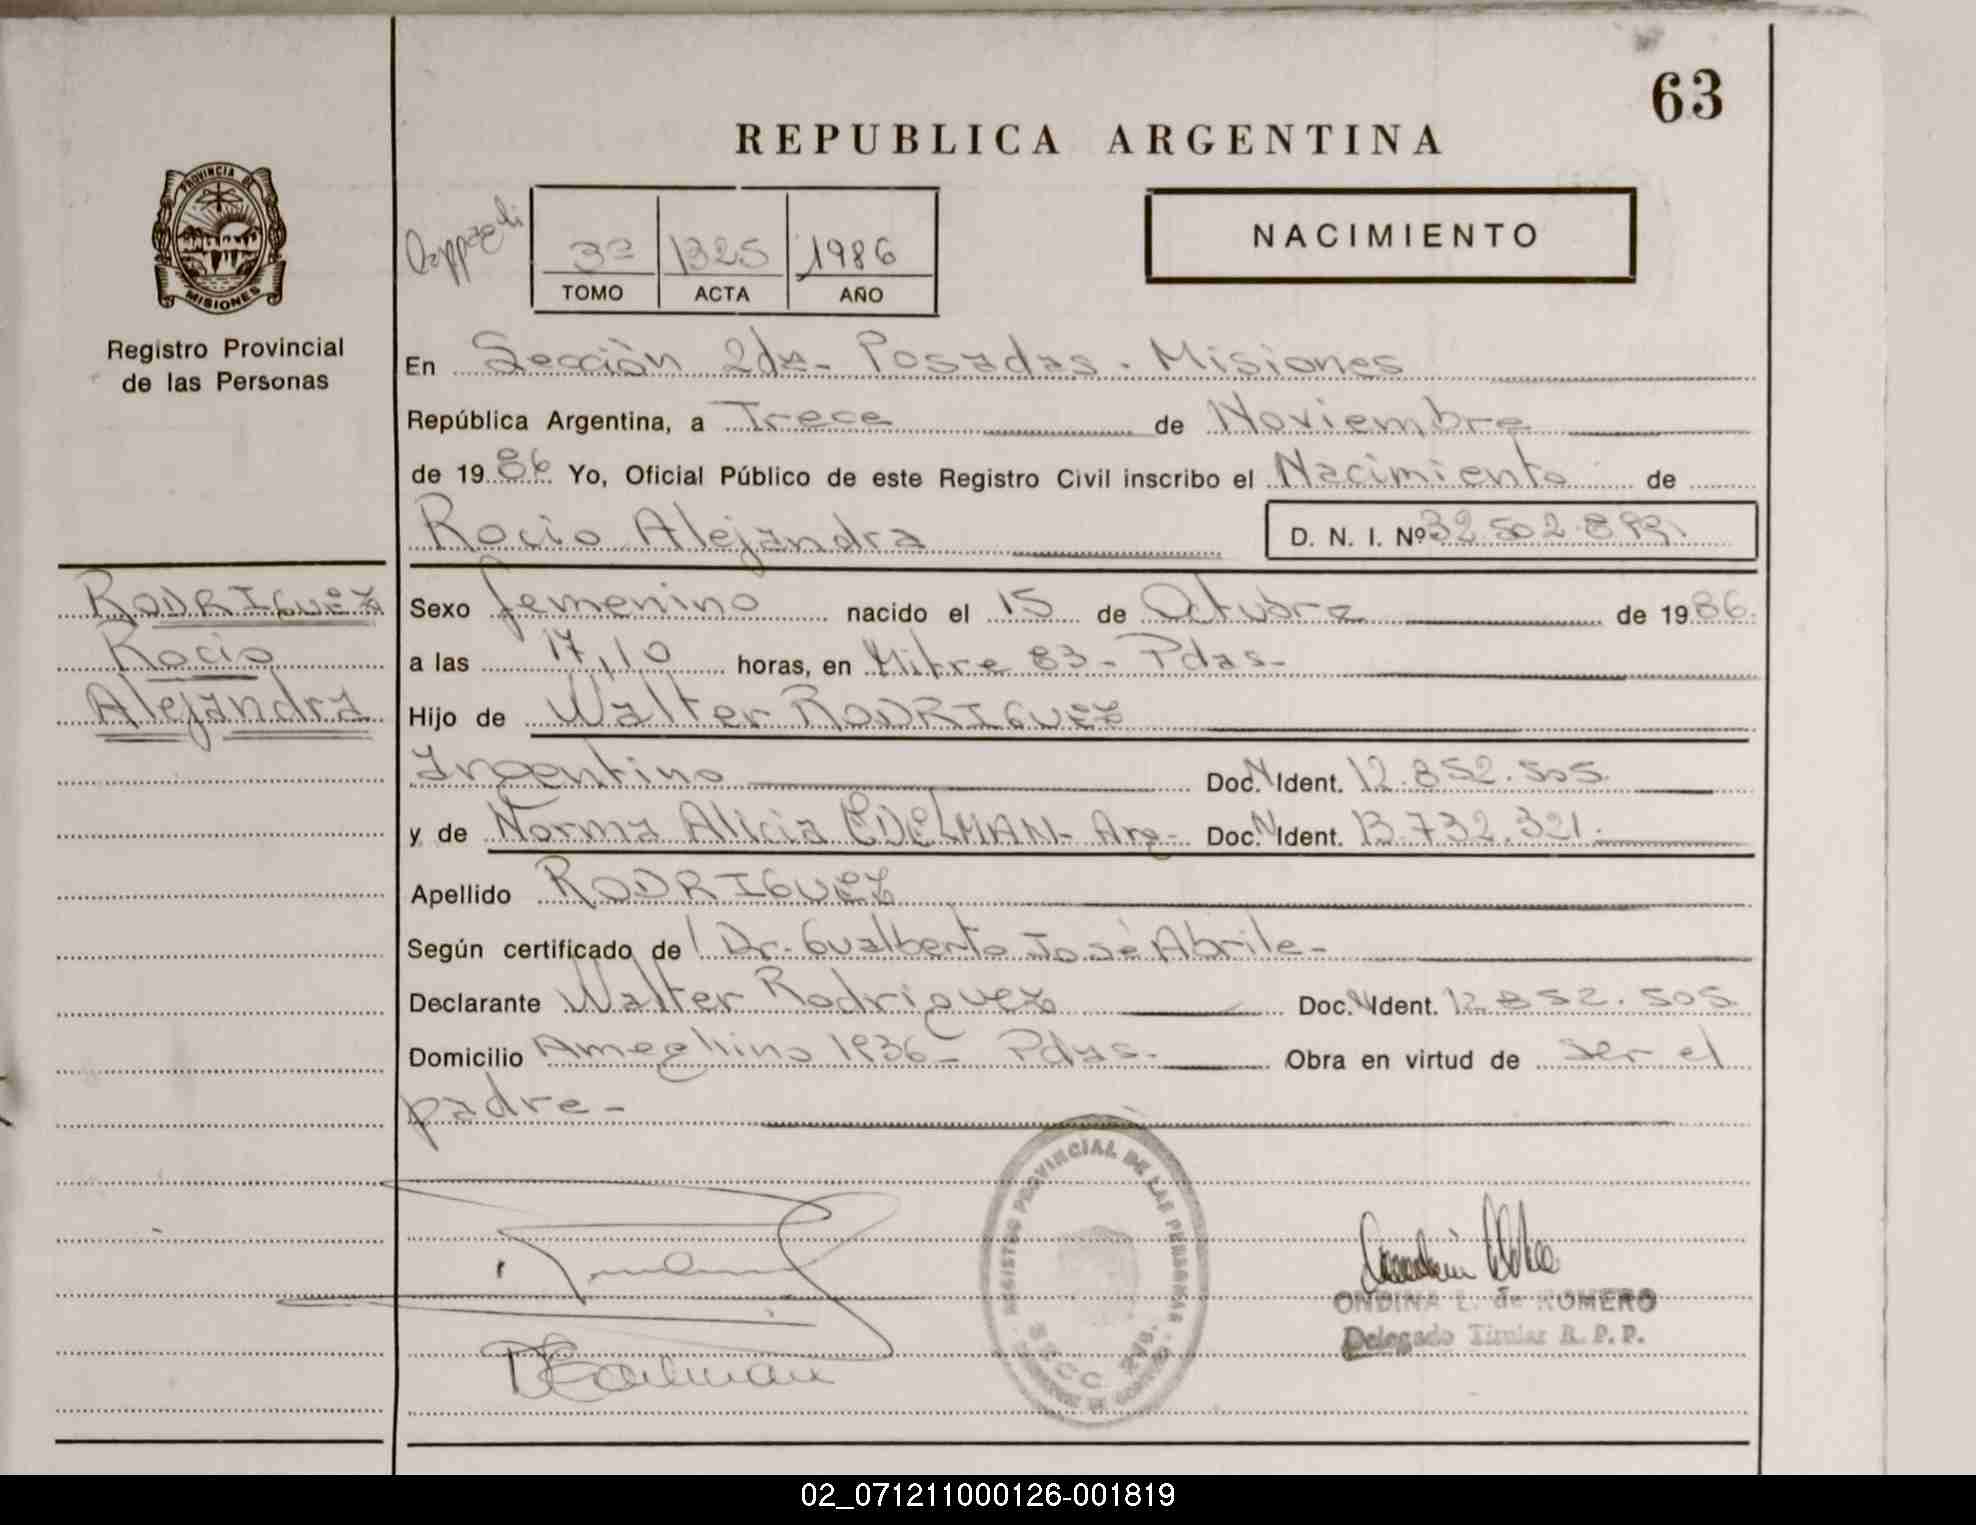 63
REPUBLICA ARGENTINA
PROVINCIA DE
MISIONES
Registro Provincial
de las Personas
3ª 1325 1986
TOMO ACTA AÑO
NACIMIENTO
En Sección 2da- Posadas. Misiones
República Argentina, a Trece de Noviembre
de 1986 Yo, Oficial Público de este Registro Civil inscribo el Nacimiento de
Rocio Alejandra D. N. I. Nº 32.502.899.
RODRIGUEZ
Rocio
Alejandra
Sexo femenino nacido el 15 de Octubre de 1986.
a las 17,10 horas, en Mitre 83- Pdas-
Hijo de Walter RODRIGUEZ
Argentino Doc. N Ident. 12.852.505.
y de Norma Alicia EDELMAN- Arg- Doc. N Ident. 13.732.321.
Apellido RODRIGUEZ
Según certificado de Dr. Gualberto José Abrile-
Declarante Walter Rodriguez Doc. N Ident. 12.852.505.
Domicilio Ameghino 1936- Pdas- Obra en virtud de ser el
padre-
REGISTRO PROVINCIAL DE LAS PERSONAS
SECC 2da.
NEdelman
ONDINA E. de ROMERO
Delegado Titular R. P. P.
02_071211000126-001819